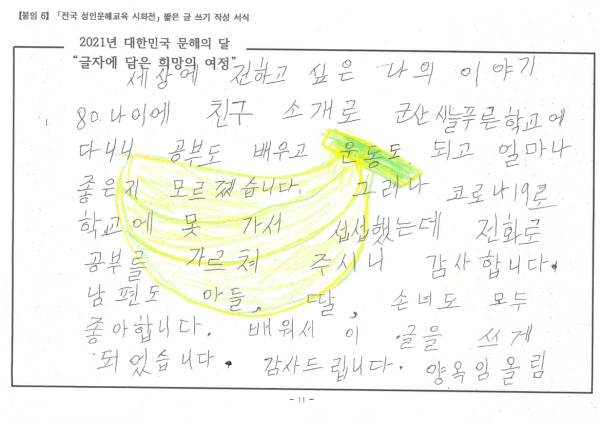 【붙임 6】「전국 성인문해교육 시화전」 짧은 글 쓰기 작성 서식
2021년 대한민국 문해의 달
“글자에 담은 희망의 여정”
세상에 전하고 싶은 나의 이야기
80 나이에 친구 소개로 군산 늘푸른학교에
다니니 공부도 배우고 운동도 되고 얼마나
좋은지 모르겠습니다. 그러나 코로나19로
학교에 못 가서 섭섭했는데 전화로
공부를 가르쳐 주시니 감사합니다.
남편도 아들, 딸, 손녀도 모두
좋아합니다. 배워서 이 글을 쓰게
되었습니다. 감사드립니다. 양옥임 올림
- 11 -